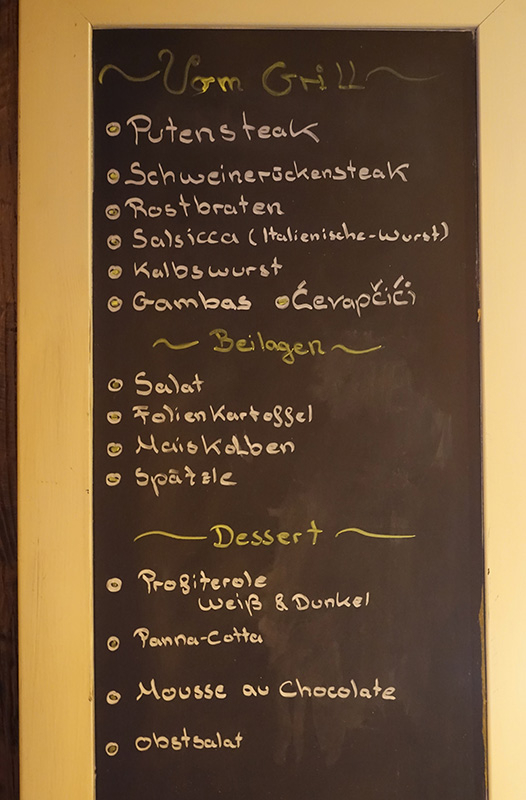 Vom Grill
Putensteak
Schweinerückensteak
Rostbraten
Salsicca (Italienische-Wurst)
Kalbswurst
Gambas Čevapčići
Beilagen
Salat
Folienkartoffel
Maiskolben
Spätzle
Dessert
Profiterole
weiß & Dunkel
Panna-Cotta
Mousse au Chocolate
Obstsalat